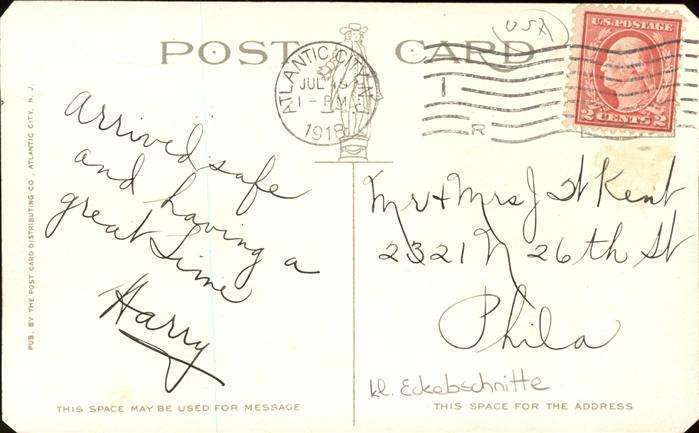 USA
U.S. POSTAGE
2 CENTS 2
POST CARD
ATLANTIC CITY, N.J.
JUL
1-PM
1918
I
R
arrived safe
and having a
great time
Harry
Mr + Mrs J H Kent
2321 N 26th St
Phila
kl. Eckabschnitte
PUB. BY THE POST CARD DISTRIBUTING CO., ATLANTIC CITY, N.J.
THIS SPACE MAY BE USED FOR MESSAGE
THIS SPACE FOR THE ADDRESS